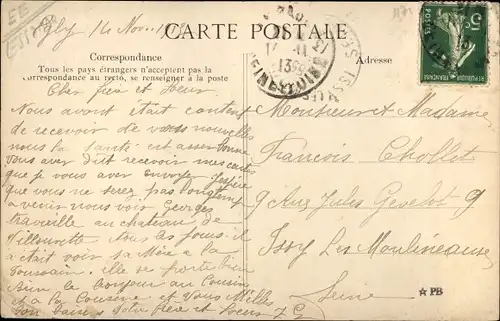 14 Nov
CARTE POSTALE
Correspondance
Adresse
Tous les pays étrangers n'acceptent pas la
correspondance au recto, se renseigner à la poste
Cher frère et Seur
Nous avont était content
de recevoir de vos nouvelles
nous la santé est asser bonne
vous aver dit recevoir mes cartes
que je vous aver envoyer J'espère
que vous ne serez pas longtemp
a venir nous voir Georges
travaille au chateau de
Villouvette Nous les jours il
a était voir sa Mère a la
Toussain elle se porte bien
Bien le bonjour au Cousin
et a la Cousine et Vous Milles
bon baisers Votre frère et Soeur
Monsieur et Madame
Francois Chollet
9 Rue Jules Gevelot 9
Issy Les Moulineaux
Seine
5c
PB